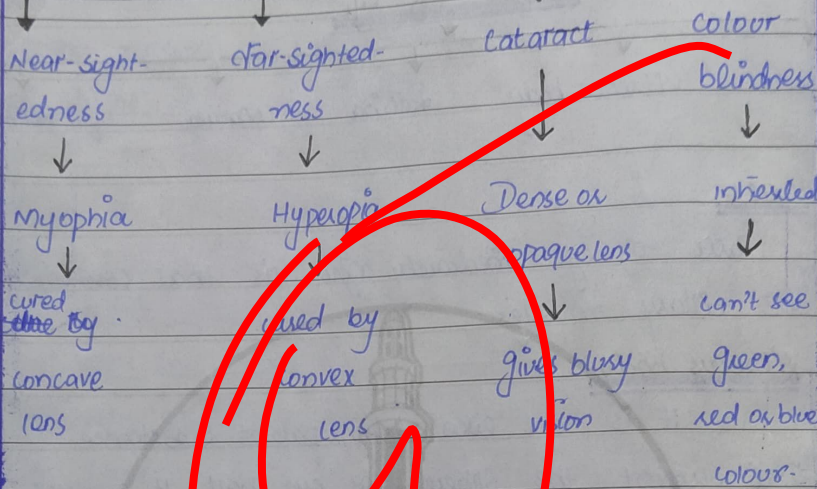 Near-sight-
edness
↓
Myophia
↓
cured
by
concave
lens
Far-sighted-
ness
↓
Hyperopia
↓
cused by
convex
lens
Cataract
↓
Dense or
opaque lens
↓
gives blury
vision
Colour
blindness
↓
inherited
↓
can't see
green,
red or blue
colour.